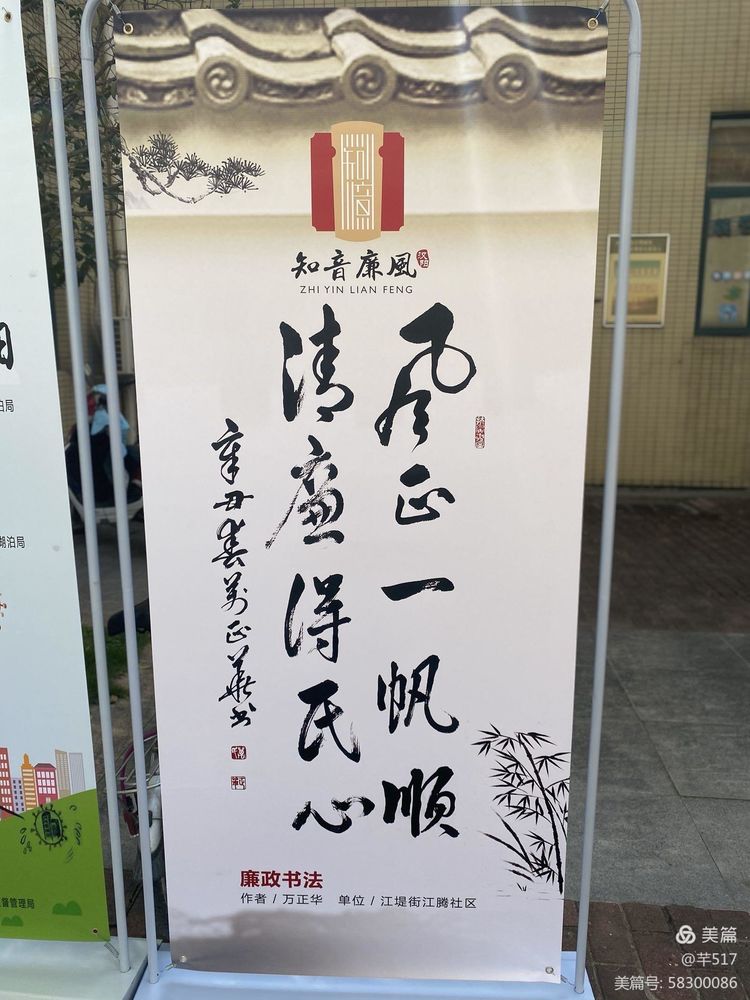 知音
知音廉風
ZHI YIN LIAN FENG
風正一帆顺
清廉得民心
辛丑春万正華书
廉政书法
作者 / 万正华 单位 / 江堤街江腾社区
泊局
湖泊局
督管理局
美篇
@芊517
美篇号: 58300086